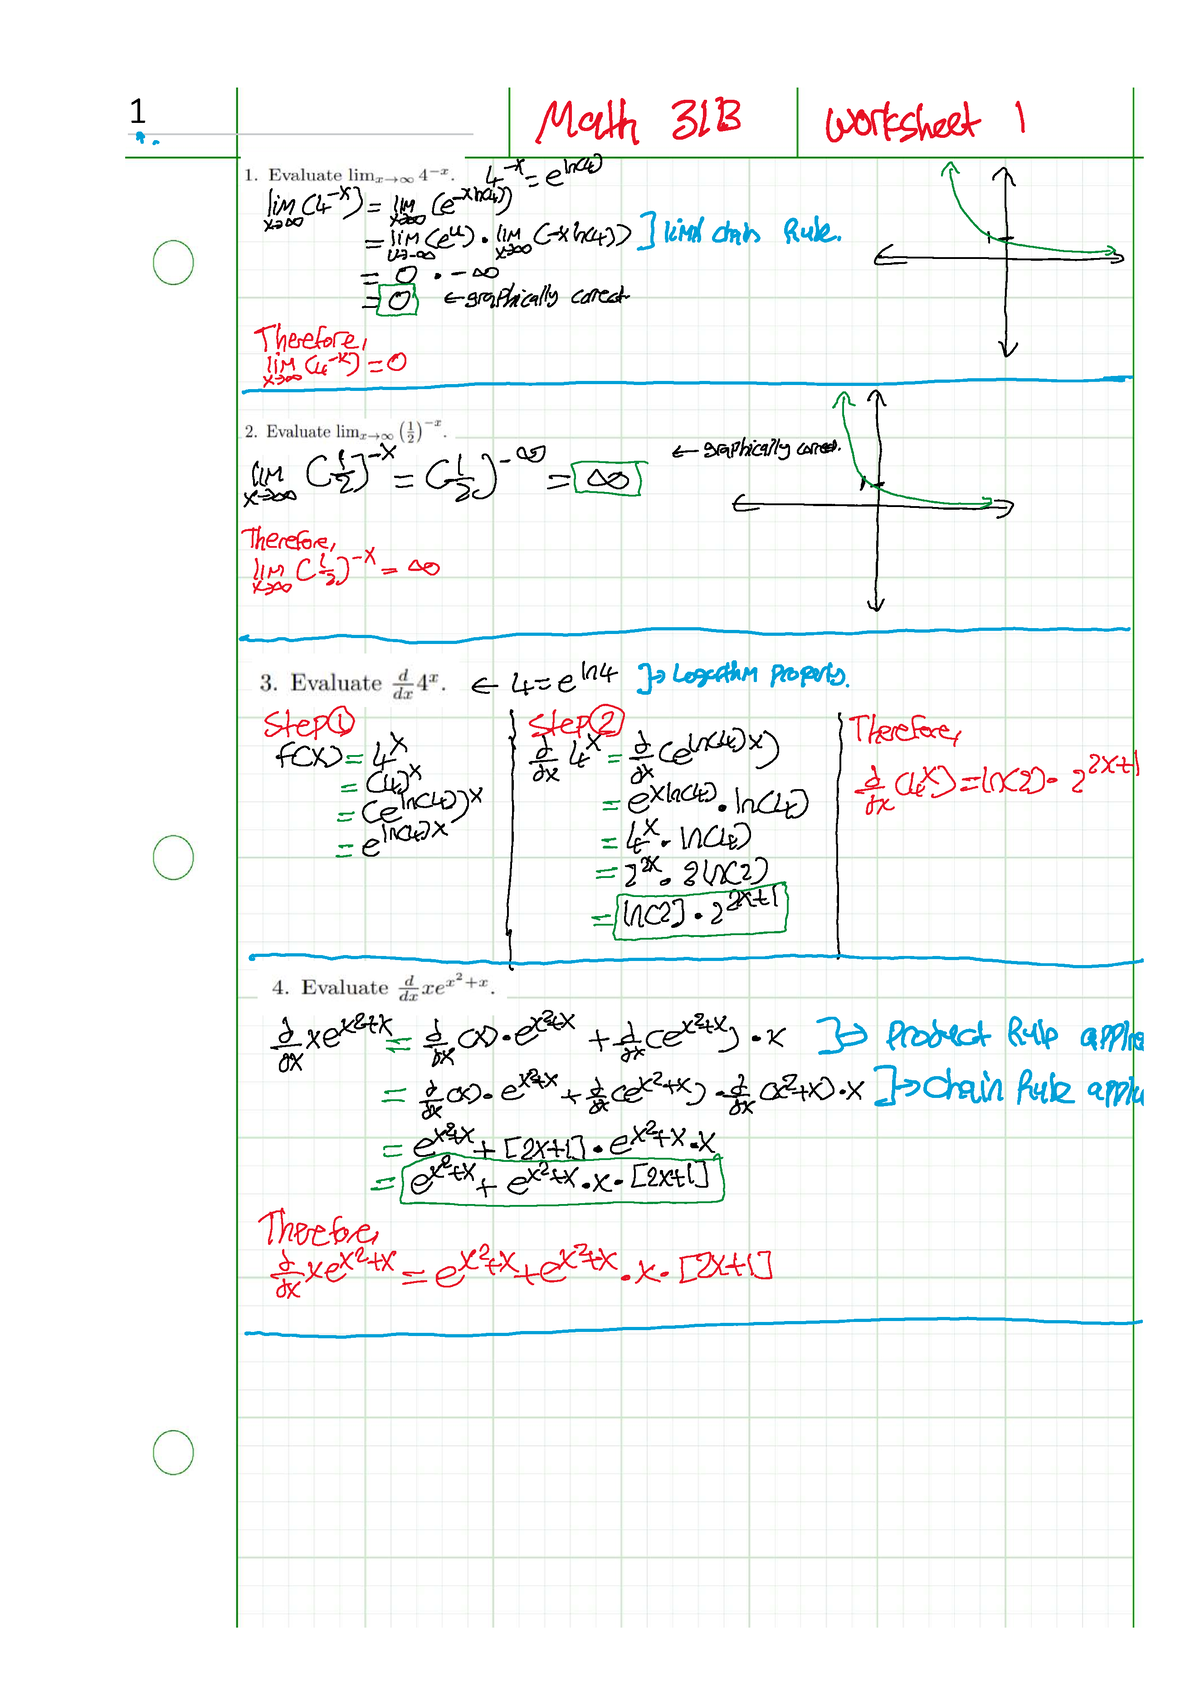 1
Math 31B
Worksheet 1
1. Evaluate lim_{x→∞} 4^{-x}. 4^{-x} = e^{ln(4)}
lim_{x→∞} (4^{-x}) = lim_{x→∞} (e^{-x ln(4)})
= lim_{u→-∞} (e^u) · lim_{x→∞} (-x ln(4)) ] limit chain Rule.
= 0 · -∞
= 0 ← graphically correct
Therefore,
lim_{x→∞} (4^{-x}) = 0
2. Evaluate lim_{x→∞} (1/2)^{-x}.
← graphically correct.
lim_{x→∞} (1/2)^{-x} = (1/2)^{-∞} = ∞
Therefore,
lim_{x→∞} (1/2)^{-x} = ∞
3. Evaluate d/dx 4^x. ← 4 = e^{ln4} ]→ Logarithm Property.
Step ①
f(x) = 4^x
= (4)^x
= (e^{ln(4)})^x
= e^{ln(4)x}
Step ②
d/dx 4^x = d/dx (e^{ln(4)x})
= e^{x ln(4)} · ln(4)
= 4^x · ln(4)
= 2^{2x} · 2ln(2)
= ln[2] · 2^{2x+1}
Therefore,
d/dx (4^x) = ln(2) · 2^{2x+1}
4. Evaluate d/dx xe^{x^2+x}.
d/dx xe^{x^2+x} = d/dx (x) · e^{x^2+x} + d/dx (e^{x^2+x}) · x ]→ Product Rule applie
= d/dx (x) · e^{x^2+x} + d/dx (e^{x^2+x}) · d/dx (x^2+x) · x ]→ Chain Rule applie
= e^{x^2+x} + [2x+1] · e^{x^2+x} · x
= e^{x^2+x} + e^{x^2+x} · x · [2x+1]
Therefore,
d/dx xe^{x^2+x} = e^{x^2+x} + e^{x^2+x} · x · [2x+1]